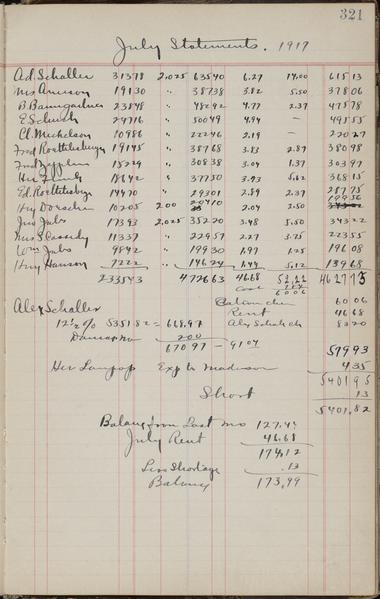 321
July Statements. 1917
Ad. Schaller 31378 2.025 63540 6.27 14.00 61513
Ms Anuson 19130 " 38738 3.82 5.50 37806
B Baumgartner 23848 " 48292 4.77 2.37 47578
E Schuetz 24716 " 50049 4.94 — 49555
Cl. Mickelson 10986 " 22246 2.19 — 22027
Fred Roethlisberger 19145 " 38768 3.83 2.87 38098
Fred Zepplin 15229 " 30838 3.04 1.37 30397
Her 18642 " 37750 3.73 5.62 36815
Ed. Roethlisberger 14470 " 29301 2.89 2.37 28775
Hry Dorschin 10205 200 20410 2.04 2.50 19956
Jno Jubs 17393 2.025 35220 3.48 5.50 34322
Mrs S. Cassidy 11337 " 22957 2.27 3.75 22355
Wm Jubs 9842 " 19930 1.97 1.25 19608
Hry Hanson 7222 " 146.24 1.44 5.12 13968
233543 472663 46.68 462773
Alex Schaller
Balance 6006
Rent 46.68
12½% 5351.82 = 668.97 Alex Schal ch 8220
200
67097 — 9104 57993
Her Exp to Madison 435
540195
Short 13
5401.82
Balance from Last Mo 127.44
July Rent 46.68
174.12
Less Shortage .13
Balance 173.99